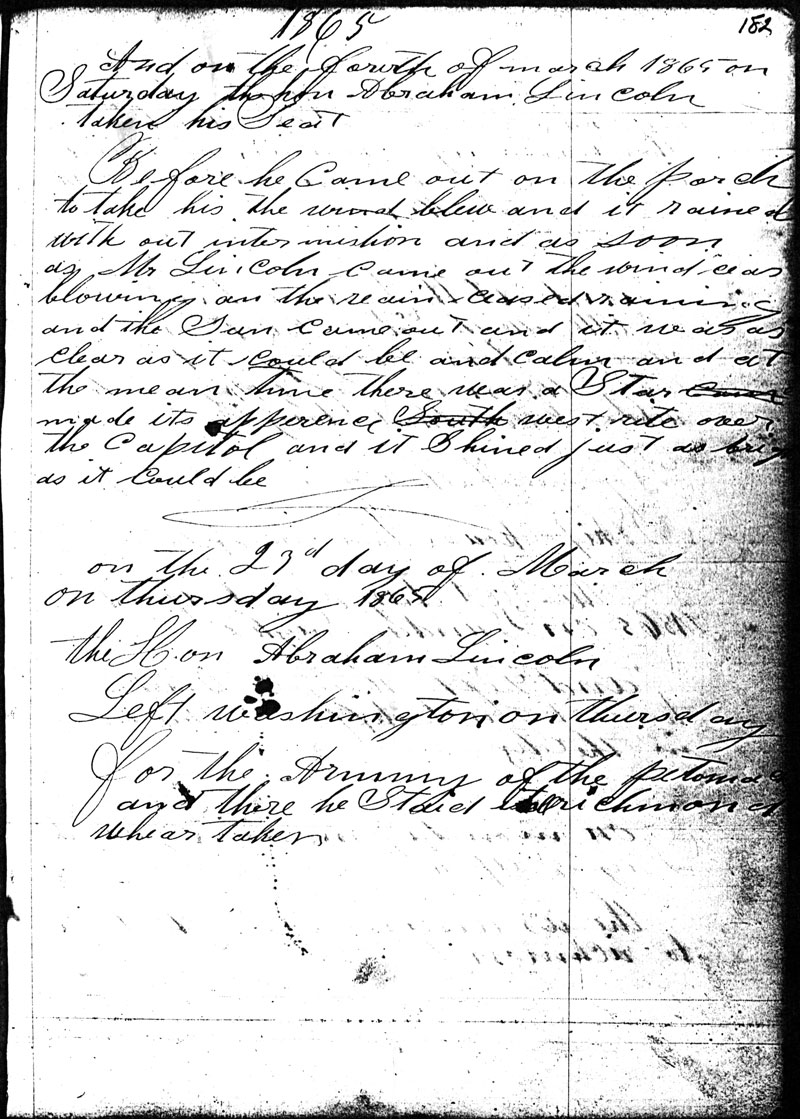 1865
182
And on the fourth of march 1865 on
Saturday the hon Abraham Lincoln
taken his Seat
Before he Came out on the porch
to take his the wind blew and it rained
with out intermishion and as Soon
as Mr Lincoln Came out the wind ceas
blowing an the rain ceased raining
and the Sun Came out and it was as
clear as it could be and calm and at
the mean time there was a Star
made its apperence South west rite over
the Capitol and it Shined just as brig
as it could be
on the 23d day of March
on thursday 1865
the Hon Abraham Lincoln
Left washington on thursday
for the Armmy of the potomac
and there he Staid richmond
whear taken